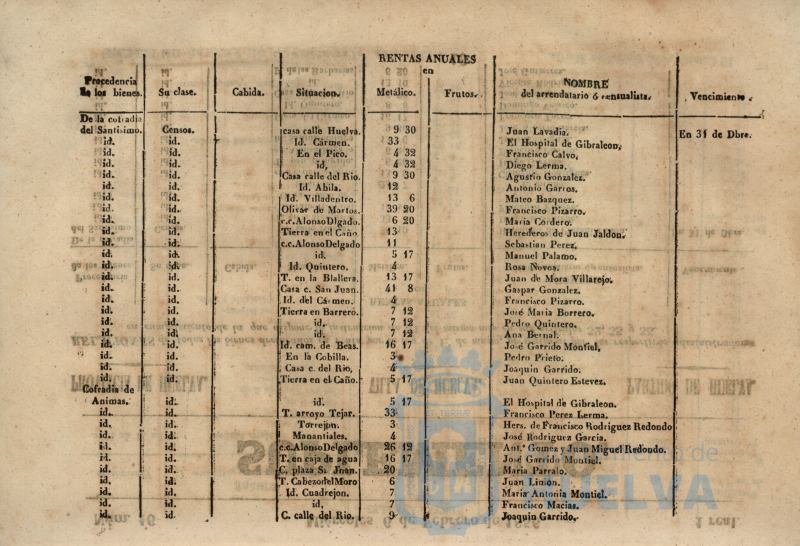 RENTAS ANUALES
en
Procedencia de los bienes. Su clase. Cabida. Situacion. Metálico. Frutos. NOMBRE del arrendatario ó censualista. Vencimiento.
De la cofradia
del Santisimo. Censos. casa calle Huelva. 9 30 Juan Lavadia. En 31 de Dbre.
id. id. Id. Cármen. 33 El Hospital de Gibraleon.
id. id. En el Pico. 4 32 Francisco Calvo.
id. id. id. 4 32 Diego Lerma.
id. id. Casa calle del Rio. 9 30 Agustin Gonzalez.
id. id. Id. Abila. 12 Antonio Garros.
id. id. Id. Villadentro. 13 6 Mateo Bazquez.
id. id. Olivar de Martos. 39 20 Francisco Pizarro.
id. id. c.c. Alonso Dlgado. 6 20 Maria Cordero.
id. id. Tierra en el Caño. 13 Herederos de Juan Jaldon.
id. id. c.c. Alonso Delgado 11 Sebastian Perez.
id. id. id. 5 17 Manuel Palamo.
id. id. Id. Quintero. 4 Rosa Novoa.
id. id. T. en la Blallera. 13 17 Juan de Mora Villarejo.
id. id. Casa c. San Juan. 41 8 Gaspar Gonzalez.
id. id. Id. del Cármen. 4 Francisco Pizarro.
id. id. Tierra en Barrero. 7 12 José Maria Borrero.
id. id. id. 7 12 Pedro Quintero.
id. id. id. 7 12 Ana Bernal.
id. id. Id. cam. de Beas. 16 17 José Garrido Montiel.
id. id. En la Cobilla. 3 Pedro Prieto.
id. id. Casa c. del Rio. 4 Joaquin Garrido.
id. id. Tierra en el Caño. 5 17 Juan Quintero Estevez.
Cofradia de
Animas. id. id. 5 17 El Hospital de Gibraleon.
id. id. T. arroyo Tejar. 33 Francisco Perez Lerma.
id. id. Torrejon. 3 Hers. de Francisco Rodriguez Redondo
id. id. Manantiales. 4 José Rodriguez Garcia.
id. id. c.c. Alonso Delgado 26 12 Ant.º Gomez y Juan Miguel Redondo.
id. id. T. en caja de agua 16 17 José Garrido Montiel.
id. id. C. plaza S. Juan. 20 Maria Parralo.
id. id. T. Cabezo del Moro 6 Juan Limon.
id. id. Id. Cuadrejon. 7 Maria Antonia Montiel.
id. id. id. 7 Francisco Macias.
id. id. C. calle del Rio. 9 Joaquin Garrido.
HUELVA